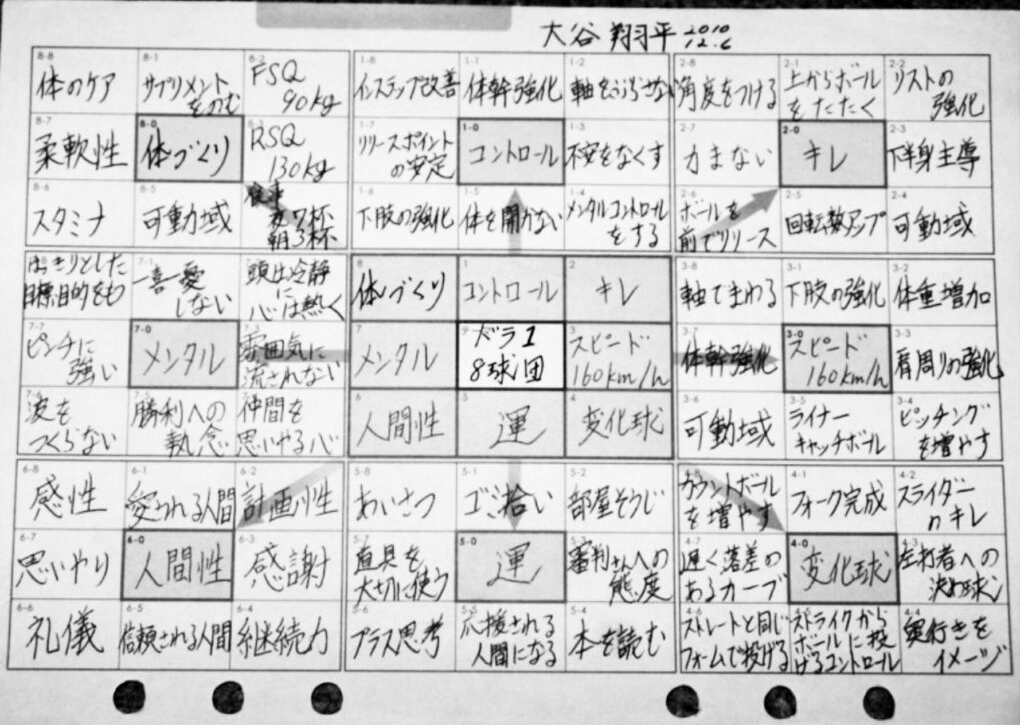 大谷 翔平 2010
12.6
8-8
体のケア
8-1
サプリメント
をのむ
8-2
FSQ
90kg
1-8
インステップ改善
1-1
体幹強化
1-2
軸をぶらさない
2-8
角度をつける
2-1
上からボール
をたたく
2-2
リストの
強化
8-7
柔軟性
8-0
体づくり
8-3
RSQ
130kg
1-7
リリースポイント
の安定
1-0
コントロール
1-3
不安をなくす
2-7
力まない
2-0
キレ
2-3
下半身主導
8-6
スタミナ
8-5
可動域
食事
夜7杯
朝3杯
1-6
下肢の強化
1-5
体を開かない
1-4
メンタルコントロール
をする
2-6
ボールを
前でリリース
2-5
回転数アップ
2-4
可動域
はっきりとした
目標、目的をもつ
7-1
一喜一憂
しない
頭は冷静
に
心は熱く
8
体づくり
1
コントロール
2
キレ
3-8
軸でまわる
3-1
下肢の強化
3-2
体重増加
7-7
ピンチに
強い
7-0
メンタル
7-3
雰囲気に
流されない
7
メンタル
ドラ1
8球団
3
スピード
160km/h
3-7
体幹強化
3-0
スピード
160km/h
3-3
肩周りの強化
7-6
波を
つくらない
7-5
勝利への
執念
7-4
仲間を
思いやる心
6
人間性
5
運
4
変化球
3-6
可動域
3-5
ライナー
キャッチボール
3-4
ピッチング
を増やす
6-8
感性
6-1
愛される人間
6-2
計画性
5-8
あいさつ
5-1
ゴミ拾い
5-2
部屋そうじ
4-8
カウントボール
を増やす
4-1
フォーク完成
4-2
スライダー
のキレ
6-7
思いやり
6-0
人間性
6-3
感謝
5-7
道具を
大切に使う
5-0
運
5-3
審判さんへの
態度
4-7
遅く落差の
あるカーブ
4-0
変化球
4-3
左打者への
決め球
6-6
礼儀
6-5
信頼される人間
6-4
継続力
5-6
プラス思考
5-5
応援される
人間になる
5-4
本を読む
4-6
ストレートと同じ
フォームで投げる
4-5
ストライクから
ボールに投
げるコントロール
4-4
奥行きを
イメージ